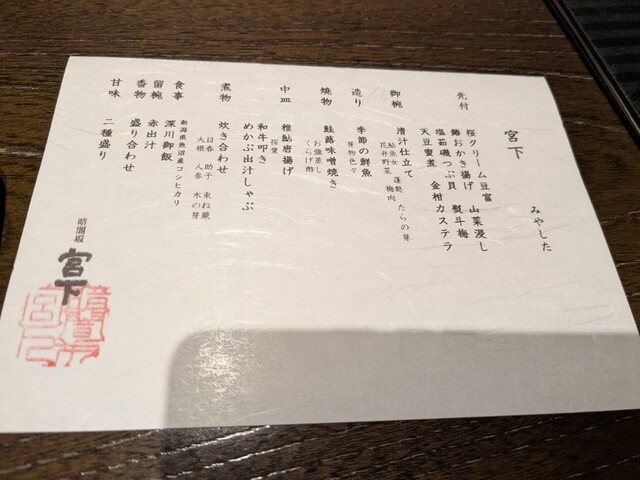 宮下 みやした
先付
桜クリーム豆富 山菜浸し
鰆おかき揚げ 熨斗梅
塩茹磯つぶ貝 金柑カステラ
天豆蜜煮
御椀
清汁仕立て
鮎魚女 蓬麩 たらの芽
花弁野菜 梅肉
造り
季節の鮮魚
芽物色々
焼物
鮭蕗味噌焼き
お雛蒸し
くらげ酢
中皿
稚鮎唐揚げ
桜葉
和牛叩き
めかぶ出汁しゃぶ
煮物
炊き合わせ
目春 助子 束ね蕨
大根 人参 木の芽
食事
深川御飯
新潟県魚沼産コシヒカリ
留椀
赤出汁
香物
盛り合わせ
甘味
二種盛り
宮下